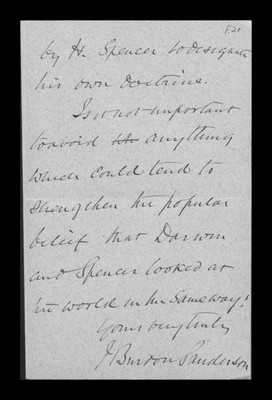 by H. Spencer to designate
his own doctrine.
Is it not important
to avoid anything
which could tend to
strengthen the popular
belief that Darwin
and Spencer looked at
the world in the same way?
Yours very truly
J Burdon Sanderson